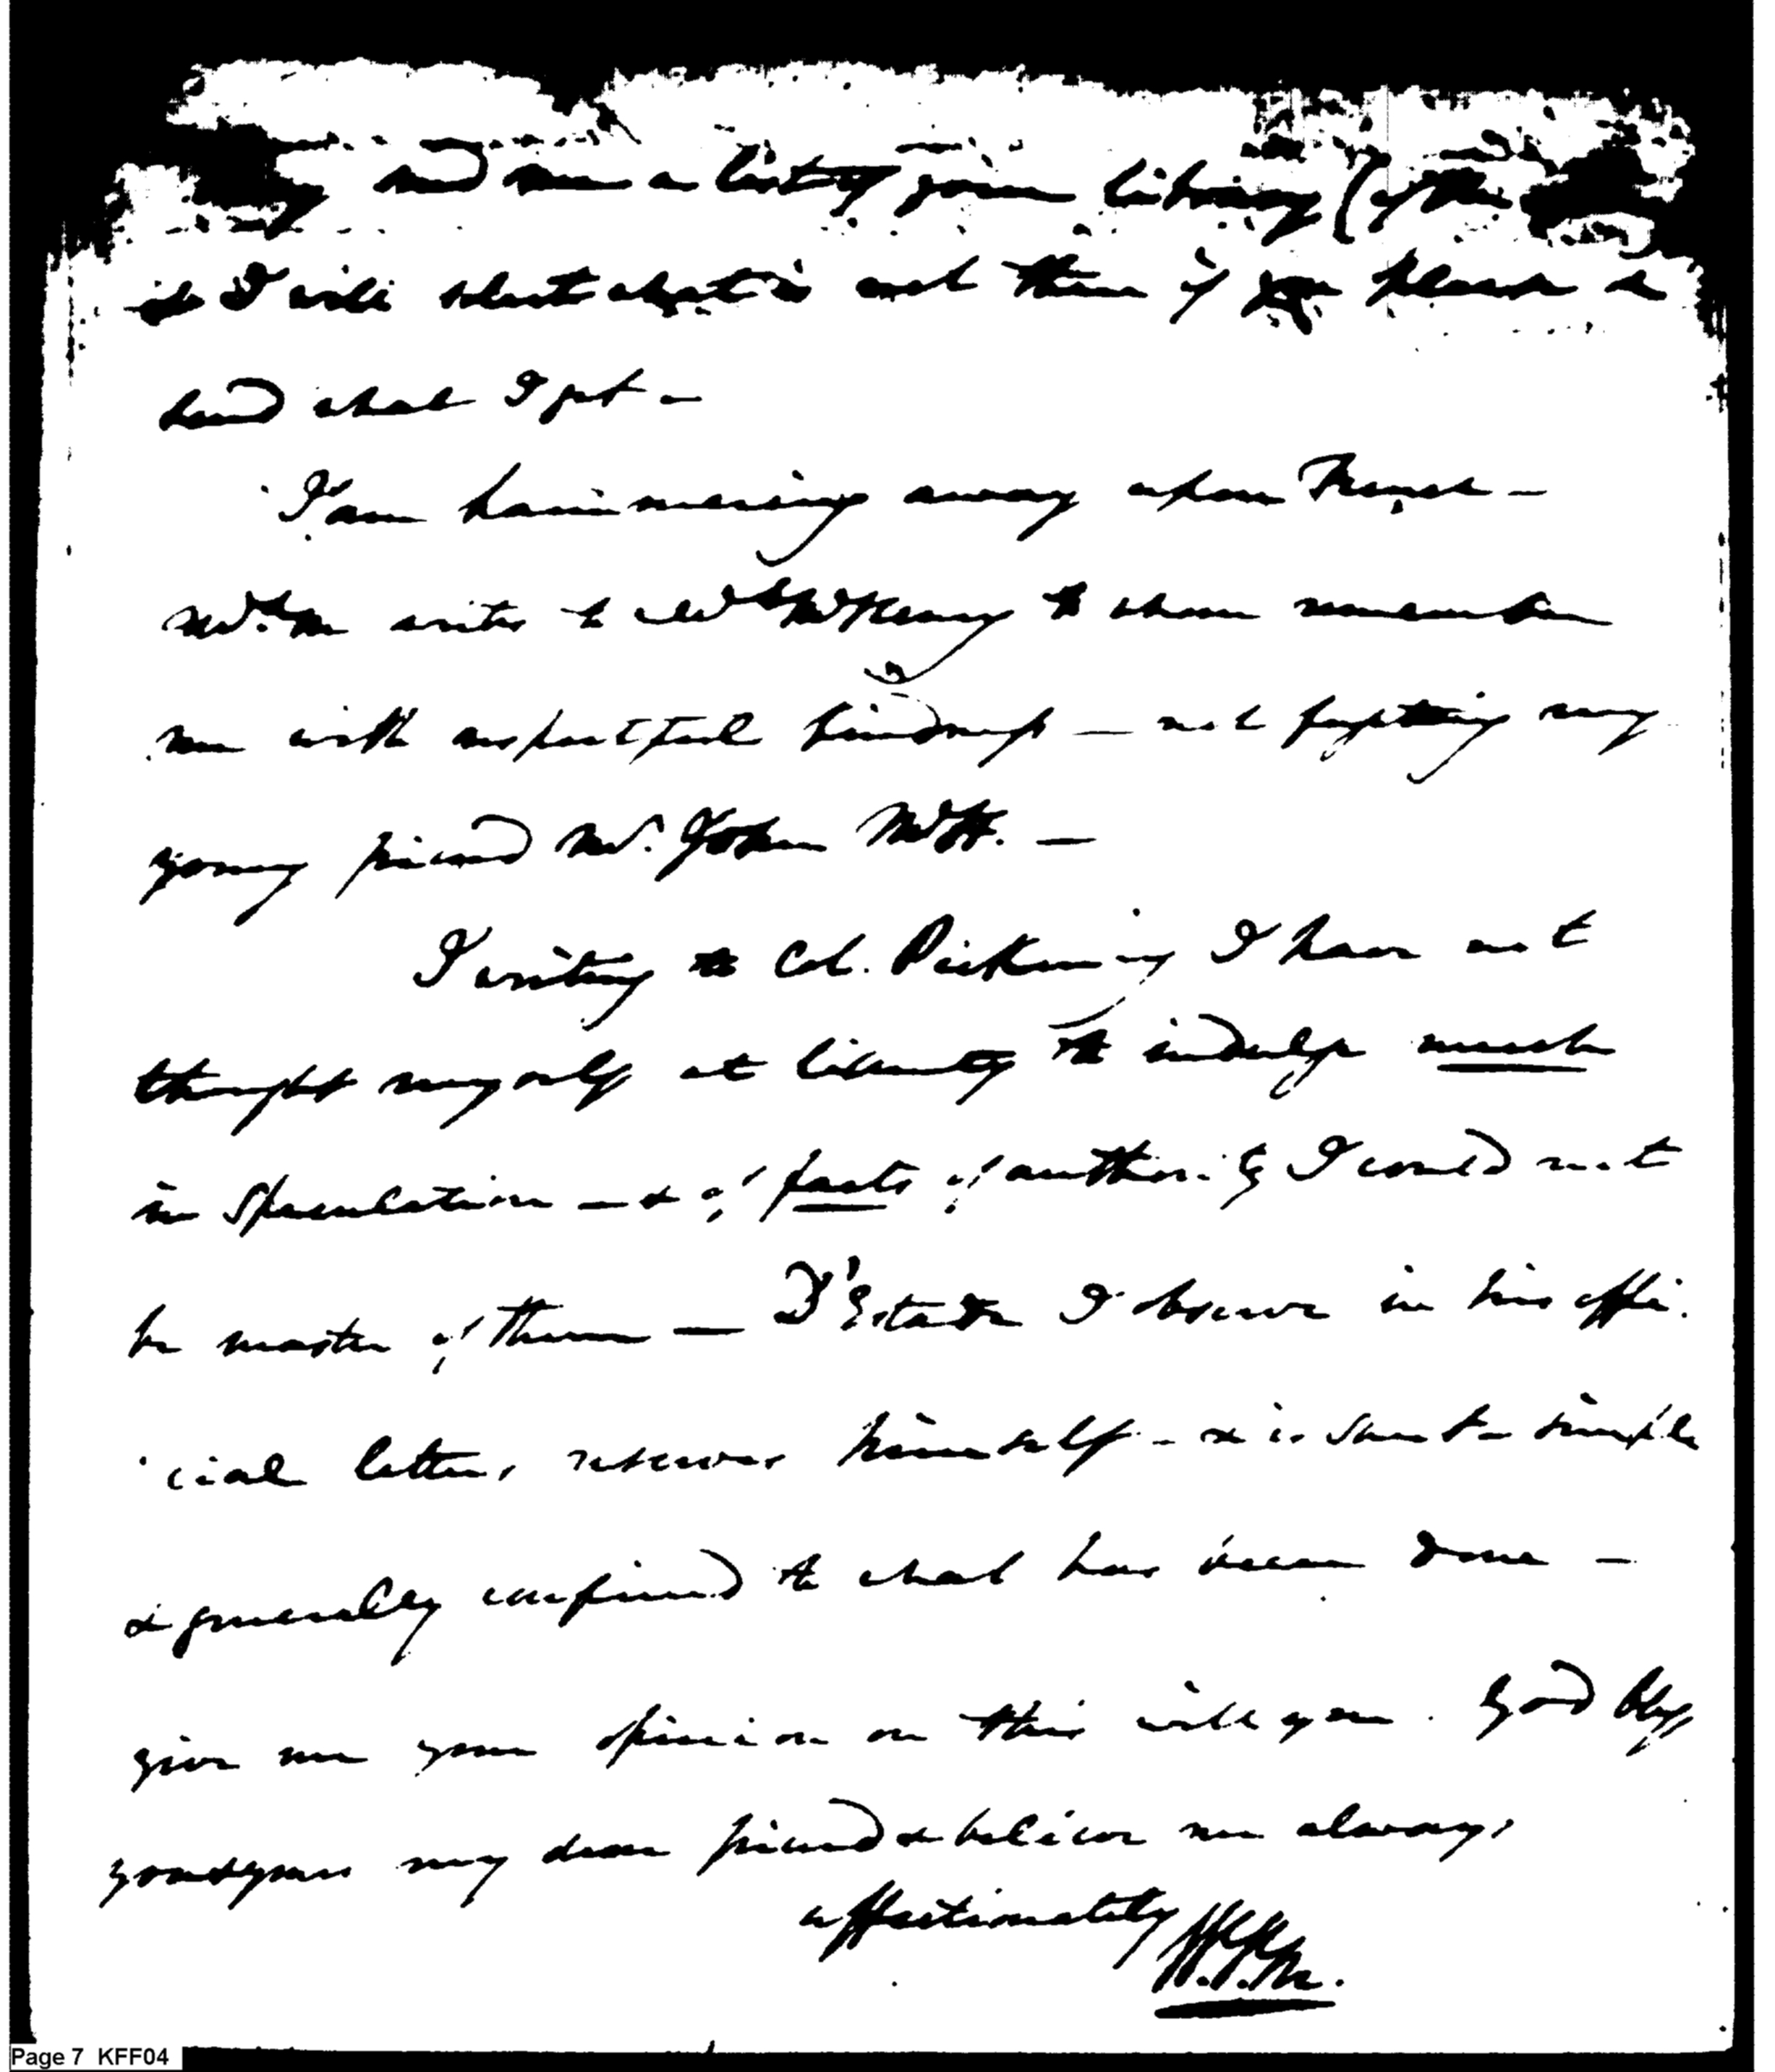 send me a
if I will about what is and them if you please &
send what I got -
I am hammering away upon France -
Mrs. M writes to Mrs McHenry to whom remember
me with respectful kindness — not forgetting my
young friend Mr. John McH. —
I writing to Col. Pickering I have not
thought myself at liberty to indulge much
in speculation — & of facts of authority I could not
be master of them — I observe in his offi.
cial letters, reserves himself - & is simple
& generally confined to what has been done —
give me your opinion on this will you. God bless
you & yours my dear friend & believe me always
affectionately W.V.M.
Page 7 KFF04